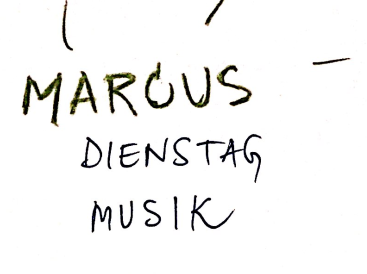 MARCUS
DIENSTAG
MUSIK